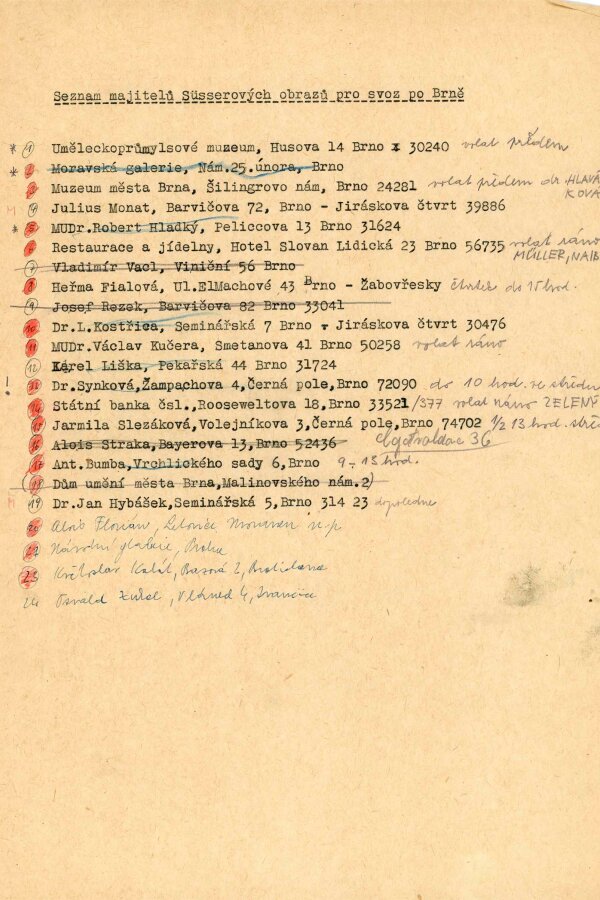 Seznam majitelů Süsserových obrazů pro svoz po Brně
* 1 Uměleckoprůmylsové muzeum, Husova 14 Brno 30240 volat předem
* 2 Moravská galerie, Nám.25.února, Brno
3 Muzeum města Brna, Šilingrovo nám, Brno 24281 volat předem dr. HLAVÁ
KOVÁ
M 4 Julius Monat, Barvičova 72, Brno - Jiráskova čtvrt 39886
* 5 MUDr.Robert Hladký, Peliccova 13 Brno 31624
6 Restaurace a jídelny, Hotel Slovan Lidická 23 Brno 56735 volat ráno
MÜLLER, NAJB
7 Vladimír Vacl, Viniční 56 Brno
8 Heřma Fialová, Ul.ElMachové 43 Brno - Žabovřesky do 15 hod.
9 Josef Rezek, Barvičova 82 Brno 33041
10 Dr.L.Kostřica, Seminářská 7 Brno - Jiráskova čtvrt 30476
11 MUDr.Václav Kučera, Smetanova 41 Brno 50258 volat ráno
12 Karel Liška, Pekařská 44 Brno 31724
! Dr.Synková,Žampachova 4,Černá pole,Brno 72090 do 10 hod. ve středu
14 Státní banka čsl.,Rooseveltova 18,Brno 33521/377 volat ráno ZELENÝ
15 Jarmila Slezáková,Volejníkova 3,Černá pole,Brno 74702 1/2 13 hod.
16 Alois Straka,Bayerova 13,Brno 52436 36
17 Ant.Bumba,Vrchlického sady 6,Brno 9 - 13 hod.
18 Dům umění města Brna,Malinovského nám.2)
M 19 Dr.Jan Hybášek,Seminářská 5,Brno 314 23 dopoledne
20 Alois Florián, Letovice n.p
22 Národní galerie, Praha
23 Květoslav Kalát, 2, Bratislava
24 Osvald 4, Ivančice